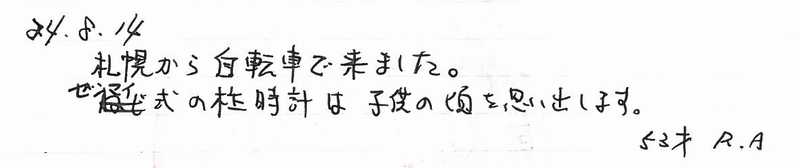 24.8.14
札幌から自転車で来ました。
ゼンマイ式の柱時計は子供の頃を思い出します。
53才 R.A